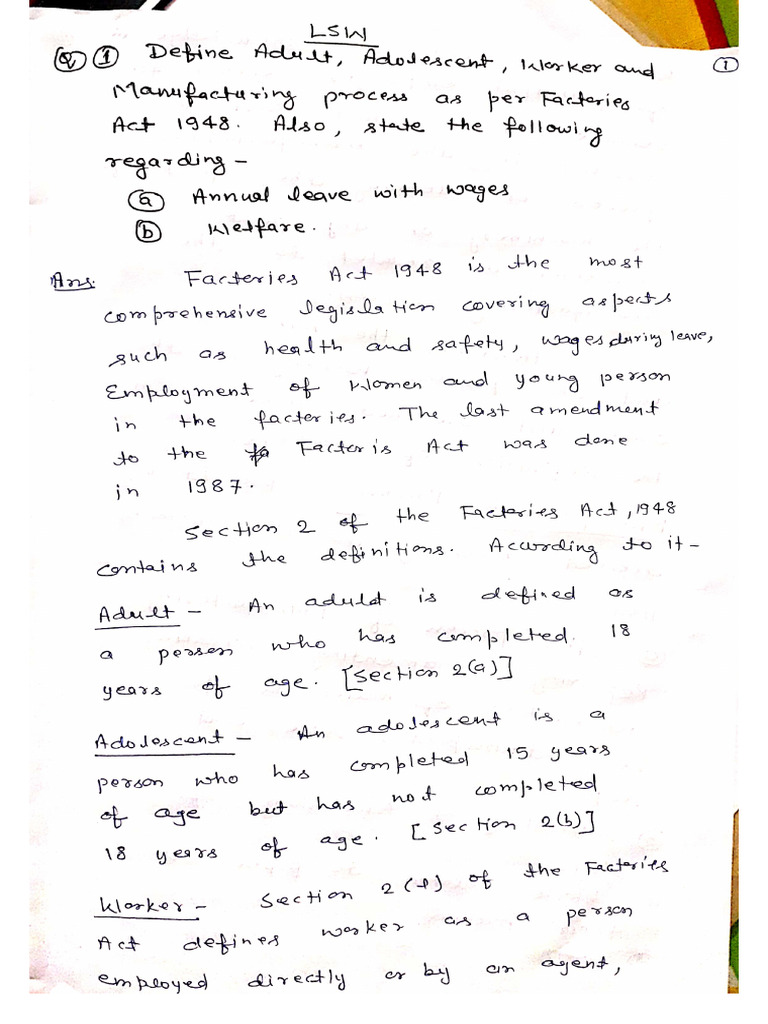 LSW
Q 1 Define Adult, Adolescent, Worker and
1
Manufacturing process as per Factories
Act 1948. Also, state the following
regarding -
a Annual leave with wages
b Welfare.
Ans. Factories Act 1948 is the most
comprehensive legislation covering aspects
such as health and safety, wages during leave,
Employment of Women and young person
in the factories. The last amendment
to the Factoris Act was done
in 1987.
Section 2 of the Factories Act, 1948
contains the definitions. According to it -
Adult - An adult is defined as
a person who has completed 18
years of age. [Section 2(a)]
Adolescent - An adolescent is a
person who has completed 15 years
of age but has not completed
18 years of age. [Section 2(b)]
Worker - Section 2(l) of the Factories
Act defines worker as a person
employed directly or by an agent,